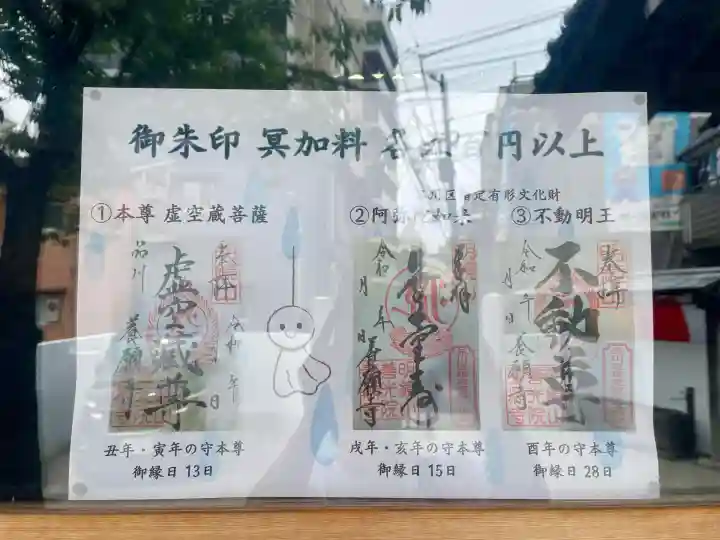 御朱印 冥加料 各 円以上
区 定有形文化財
①本尊 虚空蔵菩薩
②阿弥 如来
③不動明王
奉拝
品川
虚空蔵尊
令和 年 日
養願寺
令和 年 月 日
養願寺
奉拝
令和 年 月 日
不動尊
養願寺
丑年・寅年の守本尊
御縁日 13日
戌年・亥年の守本尊
御縁日 15日
酉年の守本尊
御縁日 28日